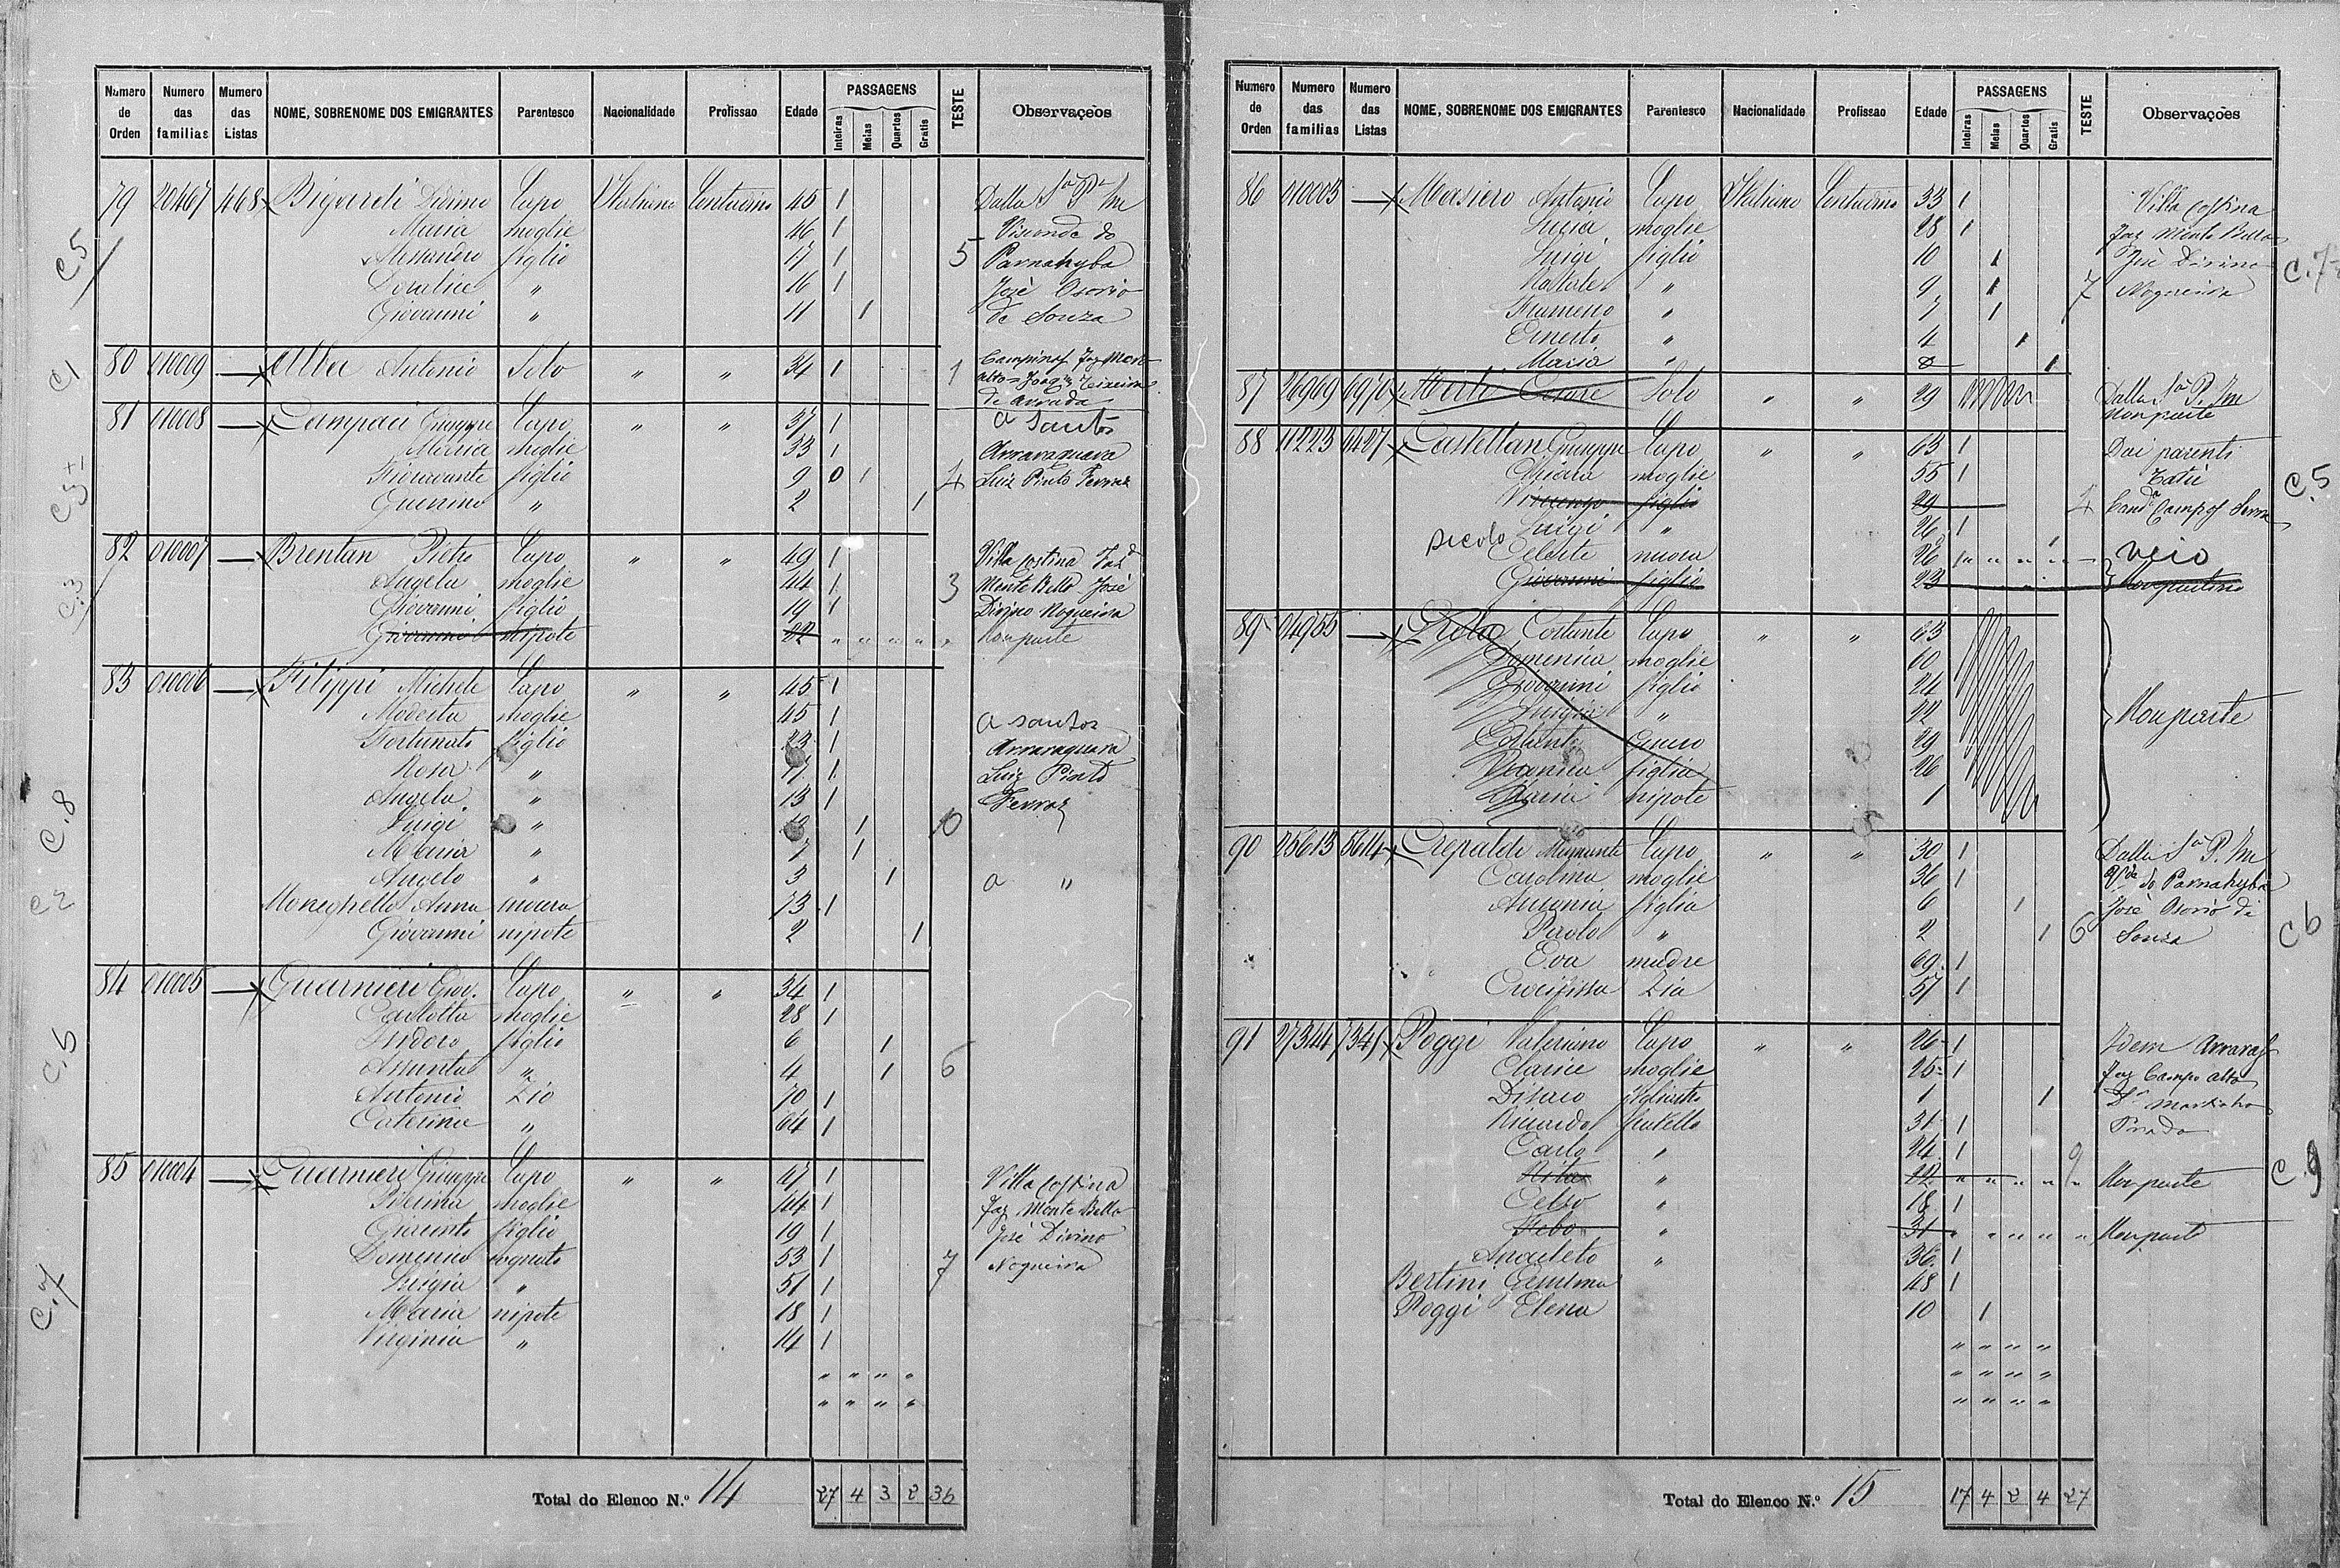 Numero de Orden Numero das familias Mumero das Listas NOME, SOBRENOME DOS EMIGRANTES Parentesco Nacionalidade Profissao Edade PASSAGENS Inteiras Meias Quartos Gratis TESTE Observaçeòs
79 20467 1468 Bigardi Didimo Capo Italiano Contadino 45 1 Dalla Sª Pª In
Maria moglie 46 1 Visconde do
C5 Alessandro figlio 17 1 5 Parnahyba
Doralice " 16 1 José Osorio
Giovanni " 11 1 de Souza
C1 80 010009 — Alba Antonio Solo " " 34 1 1 Campinas Faz Morro
alto = Joaqm Teixeira
de Arruda
81 010008 — Campaci Giuseppe Capo " " 37 1 a Santos
Maria moglie 33 1 Arraraquara
Fioravante figlio 9 0 1 4 Luiz Pinto Ferraz
Guerino " 2 1
C.3 82 010007 — Brentan Pietro Capo " " 49 1 Villa Costina Fazd
Angela moglie 44 1 3 Monte Bello José
Giovanni figlio 19 1 Divino Nogueira
Giovanni nipote 22 " " " " " Non parte
83 010006 — Filippi Michele Capo " " 45 1
Modesta moglie 45 1 a santos
Fortunato figlio 23 1 Arraraquara
Rosa " 17 1 Luiz Pinto
C.8 Angela " 13 1 Ferraz
Luigi " 1 10
Maria " 7 1
C2 Angelo " 3 1 a "
Moneghello Anna nuora 73 1
Giovanni nipote 2 1
84 010005 — Guarnieri Giov. Capo " " 34 1
Carlotta moglie 28 1
C.5 Isidoro figlio 6 1
Assunta " 4 1 6
Antonio Zio 70 1
Caterina " 64 1
85 010004 — Guarnieri Giuseppe Capo " " 47 1 Villa Costina
Erminia moglie 44 1 Faz Monte Bello
Giacinto figlio 19 1 José Divino
C.7 Domenico cognato 53 1 7 Nogueira
Luigia " 51 1
Maria nipote 18 1
Virginia " 14 1
" " " "
" " " "
Total do Elenco N.º 14 27 4 3 2 36
Numero de Orden Numero das familias Numero das Listas NOME, SOBRENOME DOS EMIGRANTES Parentesco Nacionalidade Profissao Edade PASSAGENS Inteiras Meias Quartos Gratis TESTE Observaçoès
86 010003 — Masiero Antonio Capo Italiano Contadino 33 1 Villa Costina
Lucia moglie 28 1 Faz Monte Bello
Luigi figlio 10 1 José Divino C.7
Natale " 9 1 7 Nogueira
Frumeno " 7 1
Ernesto " 4 1
Maria " 1
87 26969 6970 Merli Cesare Solo " " 29 Dalla Sª P. In
Non parte
88 11223 1427 Castellan Giuseppe Capo " " 63 1 Dai parenti
Chiara moglie 55 1 Tatùi C.5
Vincenzo figlio 29 — 4 Candª Campos Serra
Luigi " 26 1
Piccolo Celeste nuora 26 1 " " " " veio
Giovanni figlio 23 Non partono
89 24955 — Costante Capo " " 63
Domenica moglie 60
Giovanni figlio 24
Luigia " 22 Non parte
Costante 29
Veronica figlia 26
Maria nipote 1
90 25613 5614 Crepaldi Capo " " 30 1 Dalla Sª P. In
Carolina moglie 36 1 Vde do Parnahyba
Ausonia figlia 6 1 José Osorio di
Paolo " 2 1 6 Souza C6
Eva madre 69 1
Crocifissa Zia 57 1
91 27344 7345 Poggi Valeriano Capo " " 26 1 Idem Araras
Clarice moglie 25 1 Faz Campo alto
Disaco figliastro 1 1 Dr Martinho
Ricardo fratello 31 1 Prado
Carlo " 24 1 9
Rita " 22 " " " " " Non parte C.9
Celso " 18 1
Febo " 31 " " " " " Non parte
Anacleto " 36 1
Bertini Gemma 48 1
Poggi Elena 10 1
" " " "
" " " "
" " " "
Total do Elenco N.º 15 17 4 2 4 27